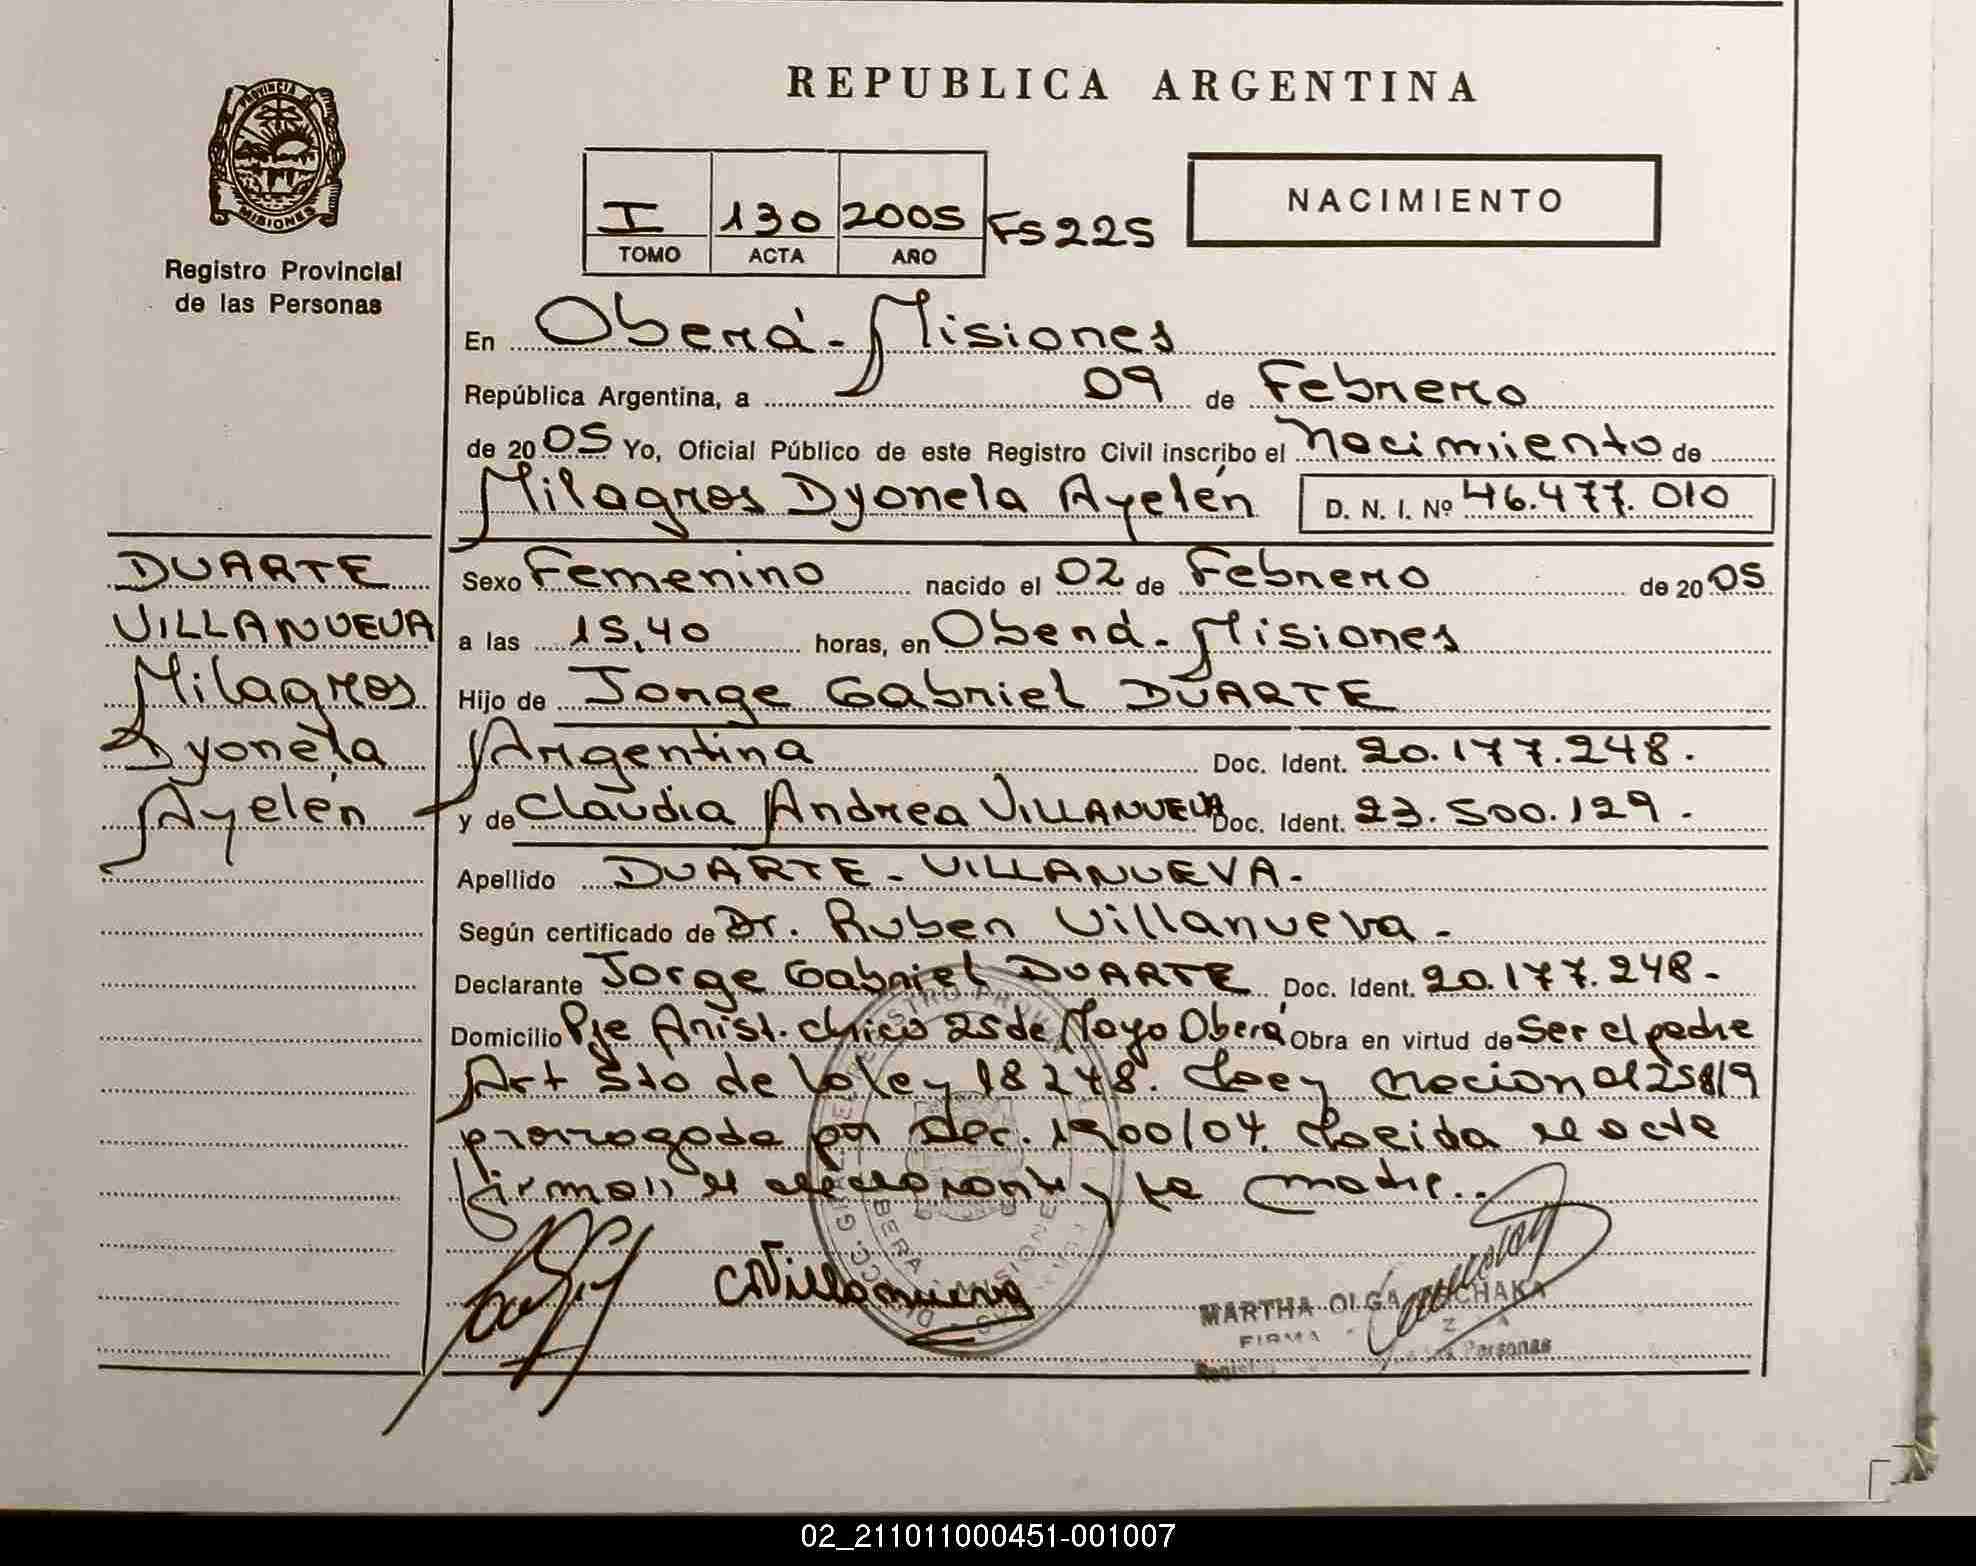 REPUBLICA ARGENTINA
PROVINCIA DE
MISIONES
Registro Provincial
de las Personas
I 130 2005 Fs 225
TOMO ACTA AÑO
NACIMIENTO
En Oberá - Misiones
República Argentina, a 09 de Febrero
de 2005 Yo, Oficial Público de este Registro Civil inscribo el Nacimiento de
Milagros Dyonela Ayelén D. N. I. Nº 46.477.010
DUARTE
VILLANUEVA
Milagros
Dyonela
Ayelén
Sexo Femenino nacido el 02 de Febrero de 2005
a las 15,40 horas, en Oberá - Misiones
Hijo de Jorge Gabriel DUARTE
Argentina Doc. Ident. 20.177.248.
y de Claudia Andrea VILLANUEVA Doc. Ident. 23.500.129.-
Apellido DUARTE - VILLANUEVA.-
Según certificado de Dr. Ruben Villanueva.-
Declarante Jorge Gabriel DUARTE Doc. Ident. 20.177.248.-
Domicilio Pje Arist. chico 25 de Mayo Oberá Obra en virtud de Ser el padre
Art 5to de la ley 18248. Ley Nacional 25819
prorrogada por Dec. 1900/04. Leida el acta
firman el declarante y la madre..
CAVillanueva
MARTHA OLGA
FIRMA
Personas
02_211011000451-001007